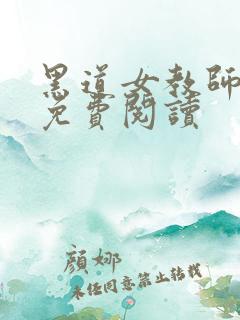 黑道女教師
免費閱讀
顏娜
未經同意禁止轉載